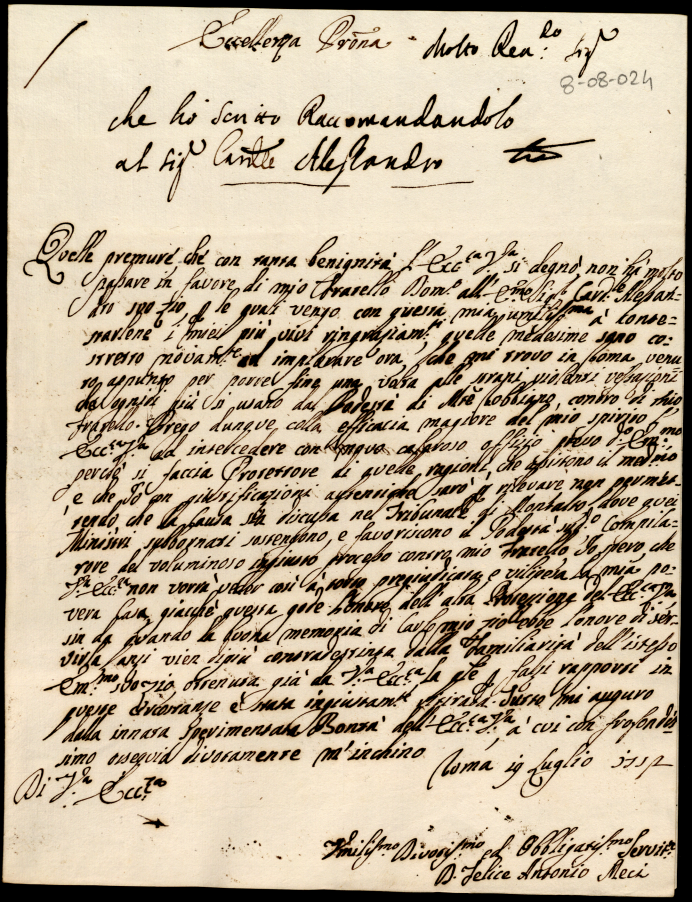 Eccellenza Prōna Molto Rea: do Sigr
8-08-024
che ho Scritto Raccomandandolo
al Sigr Cardle Alessandro
Quelle premure che con tanta benignità l'Eccza Va si degnò non hà molto
passare in favore di mio Fratello Domo all'Emo Sigr Carde Alessan-
dro suo zio, e le quai vengo con questa mia umilissma à conte-
starlene i miei più vivi ringraziamti, quelle medesime sono co-
stretto novamte ad implorare ora, che mi trovo in Roma venu
to appunto per porre fine una volta alle grani violenti vessazioni
da ognidì più si usano dal Podestà di Mte Robbiano contro di mio
Fratello. Prego dunque colla efficacia magiore del mio spirito l'
Eccza Va ad intercedere con caloroso offizio presso do Emmo
perchè si faccia Protettore di quelle ragioni, che assistono il medmo
e che Io con giustificazioni autentiche sarò à rilevare non permet-
tendo, che la Causa sia discussa nel Tribunale di Montalto, dove quei
Ministri subbornati sostengono, e favoriscono il Podestà sudo Compila-
tore del voluminoso ingiusto processo contro mio Fratello. Io spero, che
Va Eccza non vorrà veder così à torto pregiudicata, e vilipesa la mia po-
vera Casa, giacchè questa gode l'onore dell'alta Protezzione dell'Eccza Va
sin da quando la buona memoria di Carlo mio zio ebbe l'onore di ser-
virla, anzi vien dipiù contradestinta dalla Familiarità dell'istesso
Emmo suo zio ottenuta già da Va Eccza la qle p falsi rapporti in
queste circostanze è stata ingiustamte ritirata. Tutto mi auguro
dalla innata Sperimentata Bontà dell'Eccza Va, à cui con profondis-
simo ossequio divotamente m'inchino
Roma 19 Luglio
Di Va Eccza
Umilissmo Divotissmo ed Obbligatissmo Servite
D. Felice Antonio Meci